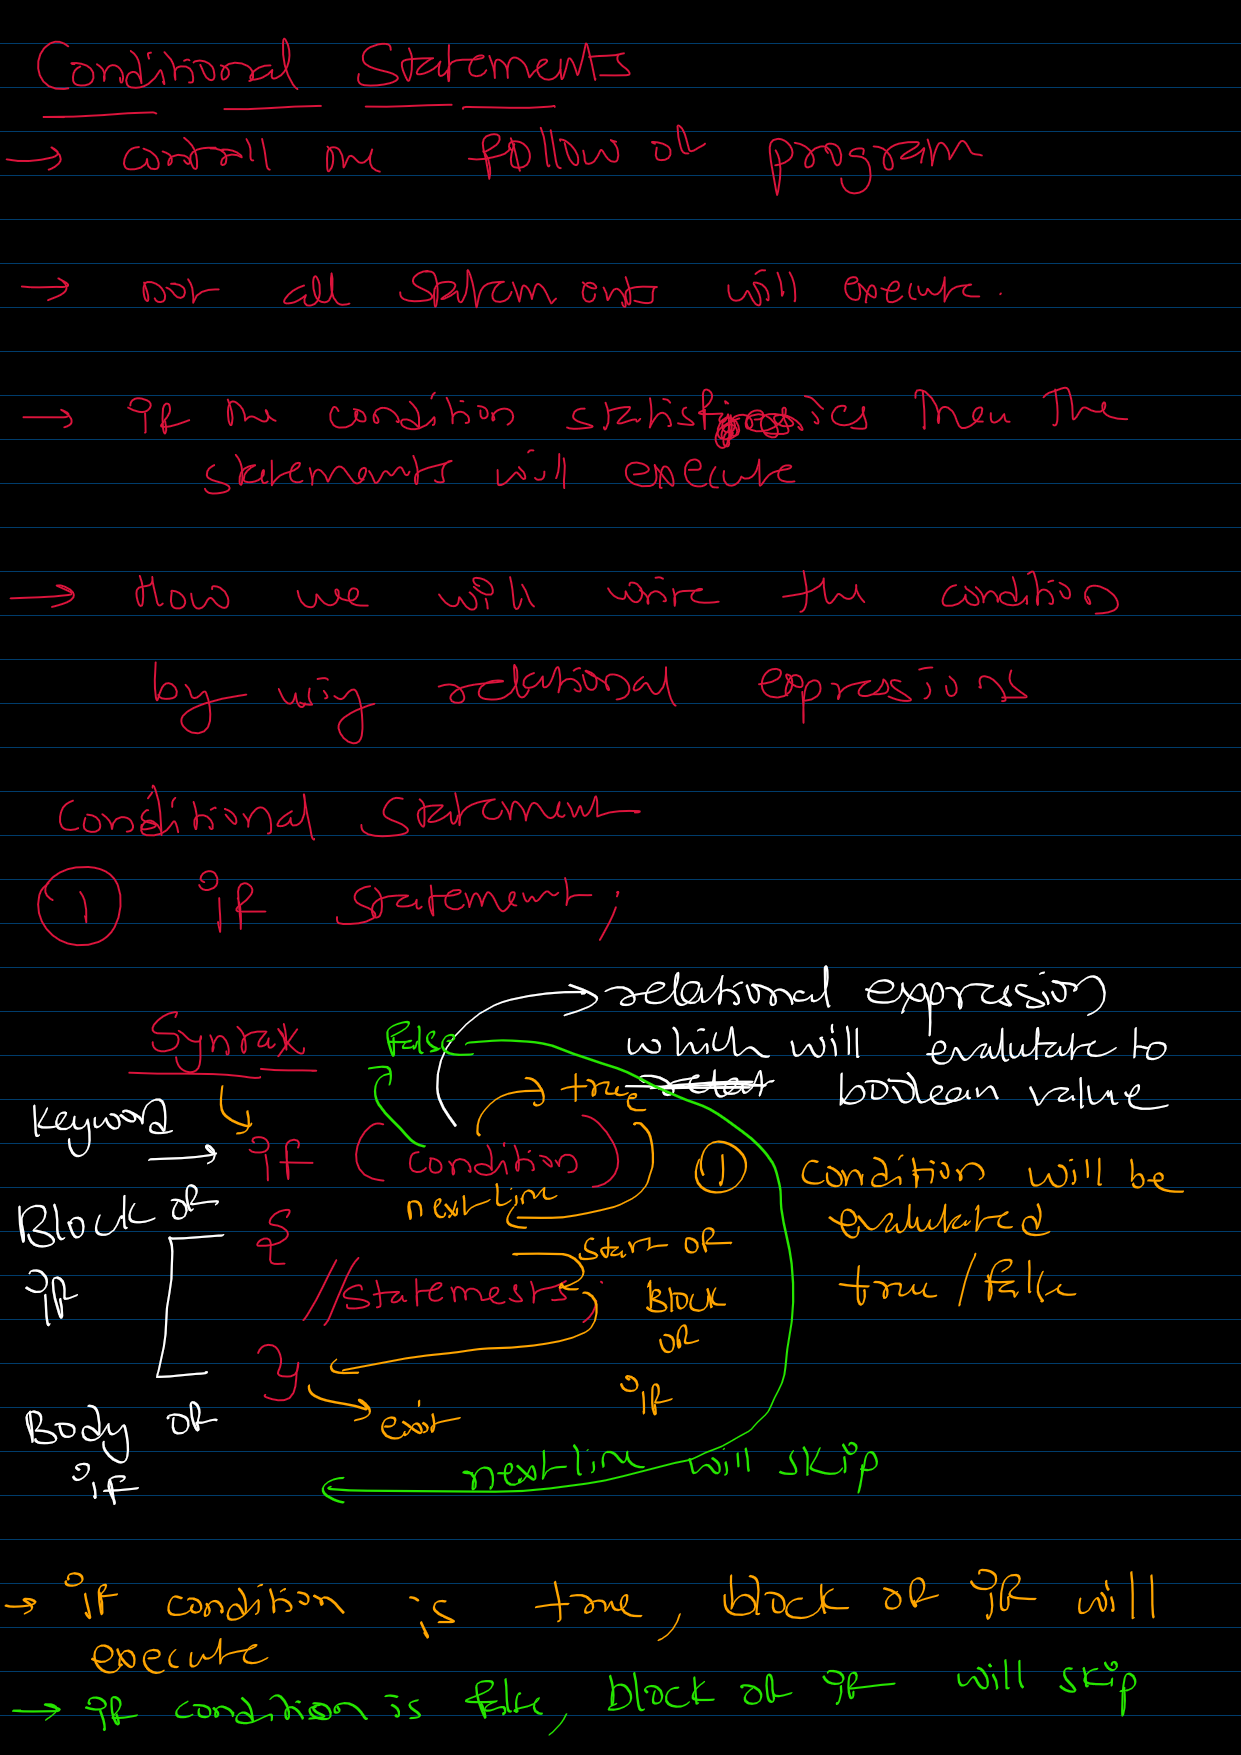 Conditional Statements
→ controll the follow of program
→ not all statements will execute.
→ if the condition statisfies then the
statements will execute
→ How we will write the condition
by using relational expressions
Conditional Statement
① if statement;
→ relational expression
Syntax false which will evalutate to
true boolean value
Keyword
→ if (condition) ① condition will be
Block of next line evalutated
{ start of
if //statements; Block true/false
of
} if
Body of exit
if next line will skip
→ if condition is true, block of if will
execute
→ if condition is false, block of if will skip